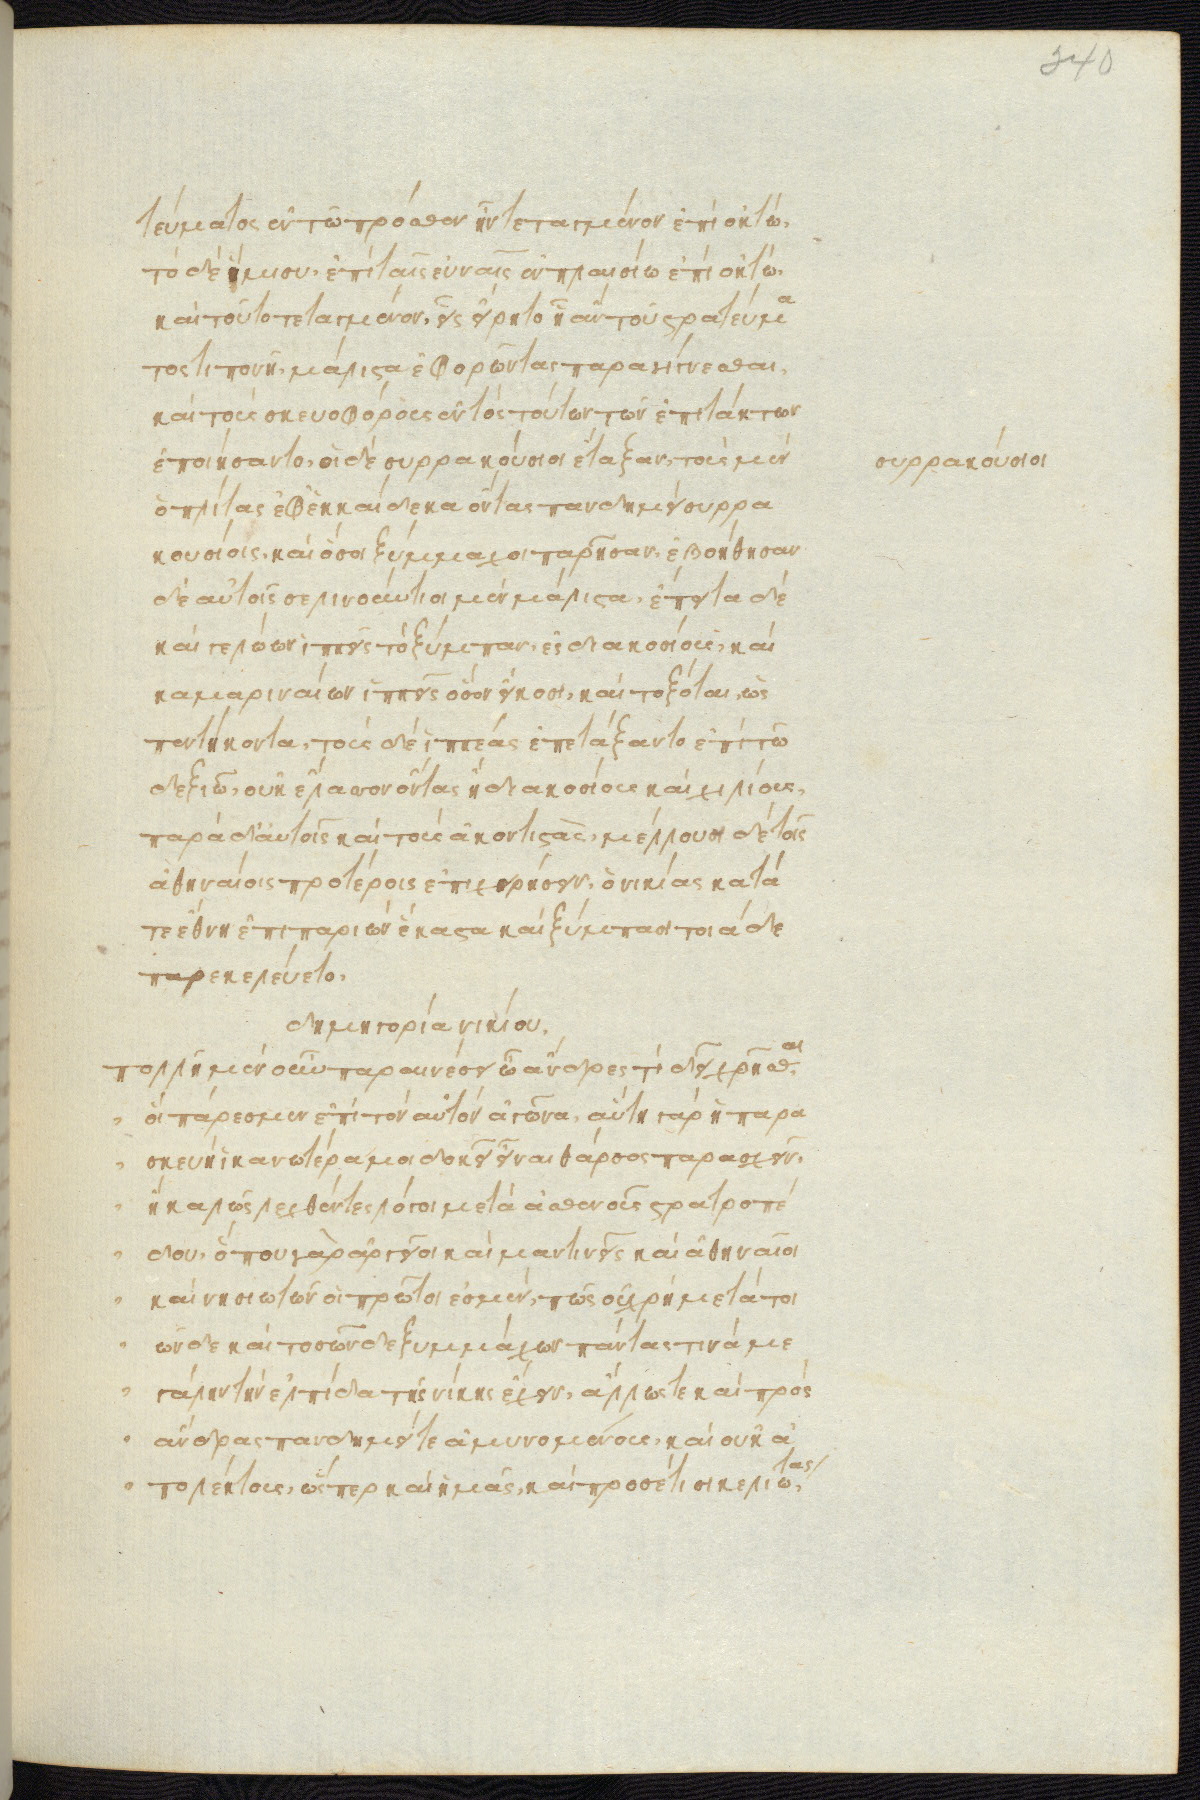 340
τεύματος ἐν τῶ πρόσθεν ἦν τεταγμένον ἐπὶ ὀκτώ,
τὸ δὲ ἥμισυ, ἐπὶ ταῖς εὐναῖς ἐν πλαισίω ἐπὶ ὀκτώ,
καὶ τοῦτο τεταγμένον, οἷς εἴρητο ἧ ἂν τοῦ στρατεύμα
τος τι πονῆ, μάλιστα ἐφορῶντας παραγίγνεσθαι,
καὶ τοὺς σκευοφόρους ἐντὸς τούτων τῶν ἐπιτάκτων
ἐποιήσαντο, οἱ δὲ συρρακούσιοι ἔταξαν, τοὺς μὲν
συρρακούσιοι
ὁπλίτας ἐφ' ἑκκαίδεκα ὄντας πανδημεὶ συρρα
κουσίοις, καὶ ὅσοι ξύμμαχοι παρῆσαν, ἐβοήθησαν
δὲ αὐτοῖς σελινούντιοι μὲν μάλιστα, ἔπειτα δὲ
καὶ γελώων ἱππεῖς τὸ ξύμπαν, ἐς διακοσίους, καὶ
καμαριναίων ἱππεῖς ὅσον εἴκοσι, καὶ τοξόται, ὡς
πεντήκοντα, τοὺς δὲ ἱππέας ἐπετάξαντο ἐπὶ τῶ
δεξιῶ, οὐκ ἔλασσον ὄντας ἢ διακοσίους καὶ χιλίους,
παρὰ δ' αὐτοῖς καὶ τοὺς ἀκοντιστὰς, μέλλουσι δὲ τοῖς
ἀθηναίοις προτέροις ἐπιχειρήσειν, ὁ νικίας κατά
τε ἔθνη ἐπιπαριὼν ἕκαστα καὶ ξύμπασι τοιάδε
παρεκελεύετο,
δημηγορία νικίου,
πολλῆ μὲν οὖν παραινέσει ὦ ἄνδρες τί δεῖ χρῆσθαι,
οἳ πάρεσμεν ἐπὶ τὸν αὐτὸν ἀγῶνα, αὐτὴ γὰρ ἡ παρα
σκευὴ ἱκανωτέρα μοι δοκεῖ εἶναι θάρσος παρασχεῖν,
ἢ καλῶς λεχθέντες λόγοι μετὰ ἀσθενοῦς στρατοπέ
δου, ὅπου γὰρ ἀργεῖοι καὶ μαντινεῖς καὶ ἀθηναῖοι
καὶ νησιωτῶν οἱ πρῶτοι ἐσμὲν, πῶς οὐ χρὴ μετὰ τοι
ῶνδε καὶ τοσῶνδε ξυμμάχων πάντας τινὰ με
γάλην τὴν ἐλπίδα τῆς νίκης ἔχειν, ἄλλως τε καὶ πρὸς
ἄνδρας πανδημεί τε ἀμυνομένους, καὶ οὐκ ἀ
πολέκτους, ὥσπερ καὶ ἡμᾶς, καὶ προσέτι σικελιώτας,